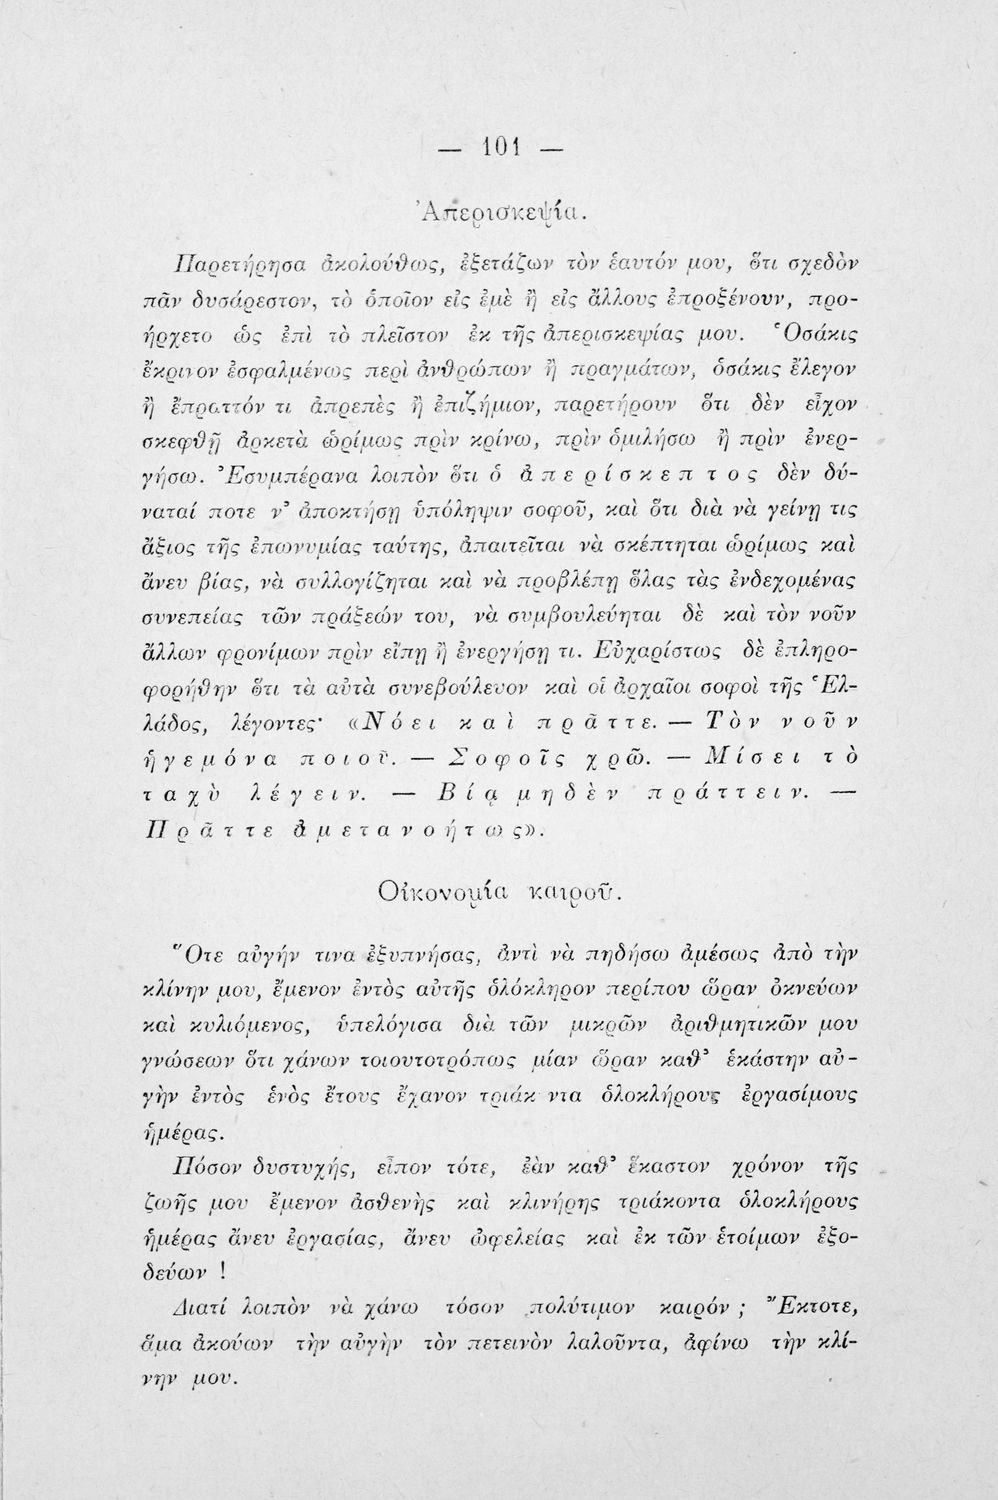 — 101 —
Ἀπερισκεψία.
Παρετήρησα ἀκολούθως, ἐξετάζων τὸν ἑαυτόν μου, ὅτι σχεδὸν
πᾶν δυσάρεστον, τὸ ὁποῖον εἰς ἐμὲ ἢ εἰς ἄλλους ἐπροξένουν, προ-
ήρχετο ὡς ἐπὶ τὸ πλεῖστον ἐκ τῆς ἀπερισκεψίας μου. Ὁσάκις
ἔκρινον ἐσφαλμένως περὶ ἀνθρώπων ἢ πραγμάτων, ὁσάκις ἔλεγον
ἢ ἔπραττόν τι ἀπρεπὲς ἢ ἐπιζήμιον, παρετήρουν ὅτι δὲν εἶχον
σκεφθῇ ἀρκετὰ ὡρίμως πρὶν κρίνω, πρὶν ὁμιλήσω ἢ πρὶν ἐνερ-
γήσω. Ἐσυμπέρανα λοιπὸν ὅτι ὁ ἀπερίσκεπτος δὲν δύ-
ναταί ποτε ν' ἀποκτήσῃ ὑπόληψιν σοφοῦ, καὶ ὅτι διὰ νὰ γείνῃ τις
ἄξιος τῆς ἐπωνυμίας ταύτης, ἀπαιτεῖται νὰ σκέπτηται ὡρίμως καὶ
ἄνευ βίας, νὰ συλλογίζηται καὶ νὰ προβλέπῃ ὅλας τὰς ἐνδεχομένας
συνεπείας τῶν πράξεών του, νὰ συμβουλεύηται δὲ καὶ τὸν νοῦν
ἄλλων φρονίμων πρὶν εἴπῃ ἢ ἐνεργήσῃ τι. Εὐχαρίστως δὲ ἐπληρο-
φορήθην ὅτι τὰ αὐτὰ συνεβούλευον καὶ οἱ ἀρχαῖοι σοφοὶ τῆς Ἑλ-
λάδος, λέγοντες· «Νόει καὶ πρᾶττε. — Τὸν νοῦν
ἡγεμόνα ποιοῦ. — Σοφοῖς χρῶ. — Μίσει τὸ
ταχὺ λέγειν. — Βίᾳ μηδὲν πράττειν. —
Πρᾶττε ἀμετανοήτως».
Οἰκονομία καιροῦ.
Ὅτε αὐγήν τινα ἐξυπνήσας, ἀντὶ νὰ πηδήσω ἀμέσως ἀπὸ τὴν
κλίνην μου, ἔμενον ἐντὸς αὐτῆς ὁλόκληρον περίπου ὥραν ὀκνεύων
καὶ κυλιόμενος, ὑπελόγισα διὰ τῶν μικρῶν ἀριθμητικῶν μου
γνώσεων ὅτι χάνων τοιουτοτρόπως μίαν ὥραν καθ' ἑκάστην αὐ-
γὴν ἐντὸς ἑνὸς ἔτους ἔχανον τριάκ ντα ὁλοκλήρους ἐργασίμους
ἡμέρας.
Πόσον δυστυχής, εἶπον τότε, ἐὰν καθ' ἕκαστον χρόνον τῆς
ζωῆς μου ἔμενον ἀσθενὴς καὶ κλινήρης τριάκοντα ὁλοκλήρους
ἡμέρας ἄνευ ἐργασίας, ἄνευ ὠφελείας καὶ ἐκ τῶν ἑτοίμων ἐξο-
δεύων !
Διατί λοιπὸν νὰ χάνω τόσον πολύτιμον καιρόν ; Ἔκτοτε,
ἅμα ἀκούων τὴν αὐγὴν τὸν πετεινὸν λαλοῦντα, ἀφίνω τὴν κλί-
νην μου.